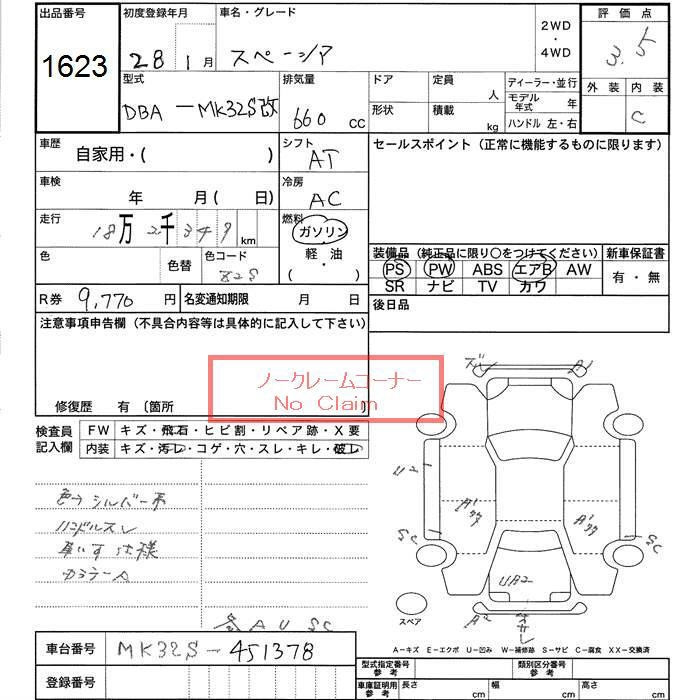 出品番号
1623
初度登録年月
28 1月
車名・グレード
スペーシア
2WD
・
4WD
評価点
3.5
外装 内装
C
型式
DBA-MK32S改
排気量
660 cc
ドア
形状
定員
人
積載
kg
ディーラー・並行
モデル年式 年
ハンドル 左・右
車歴
自家用・( )
シフト
AT
セールスポイント（正常に機能するものに限ります）
車検
年 月( 日)
冷房
AC
走行
18万2千349km
燃料
ガソリン
・
軽・油
( )
色
色替
色コード
Z2S
装備品（純正品に限り○をつけてください）
PS PW ABS エアB AW
SR ナビ TV カワ
新車保証書
有・無
R券 9,770円
名変通知期限 月 日
後日品
注意事項申告欄（不具合内容等は具体的に記入して下さい）
ノークレームコーナー
No Claim
修復歴 有〔箇所 〕
検査員
記入欄
FW キズ・飛石・ヒビ割・リペア跡・X要
内装 キズ・汚レ・コゲ・穴・スレ・キレ・破レ
色サシルバー系
ハンドルスレ
車いす仕様
カラーナーA
A1
U2
A1
A1
SC
SC
UB2
A2
スペア
A U SC
A－キズ E－エクボ U－凹み W－補修跡 S－サビ C－腐食 XX－交換済
車台番号 MK32S-451378
登録番号
型式指定番号
参考
類別区分番号
参考
車庫証明用
参考
長さ cm
幅 cm
高さ cm